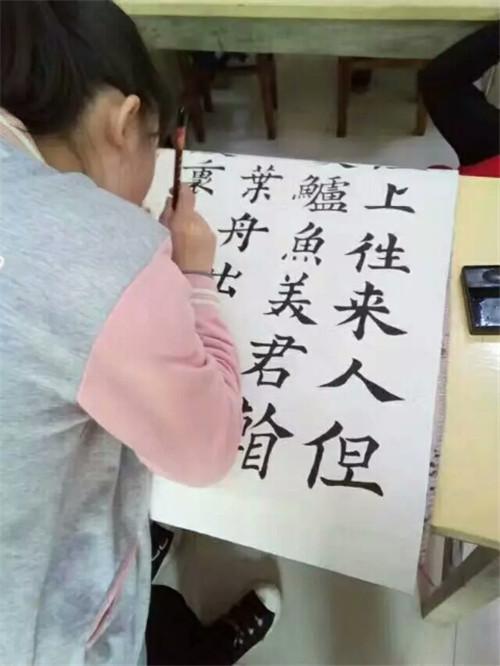 上往来人但
鱸魚美君看
葉舟出
裏